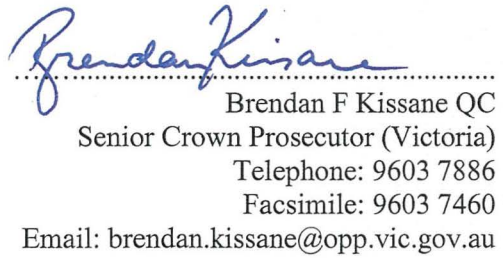 Brendan Kissane
Brendan F Kissane QC
Senior Crown Prosecutor (Victoria)
Telephone: 9603 7886
Facsimile: 9603 7460
Email: brendan.kissane@opp.vic.gov.au